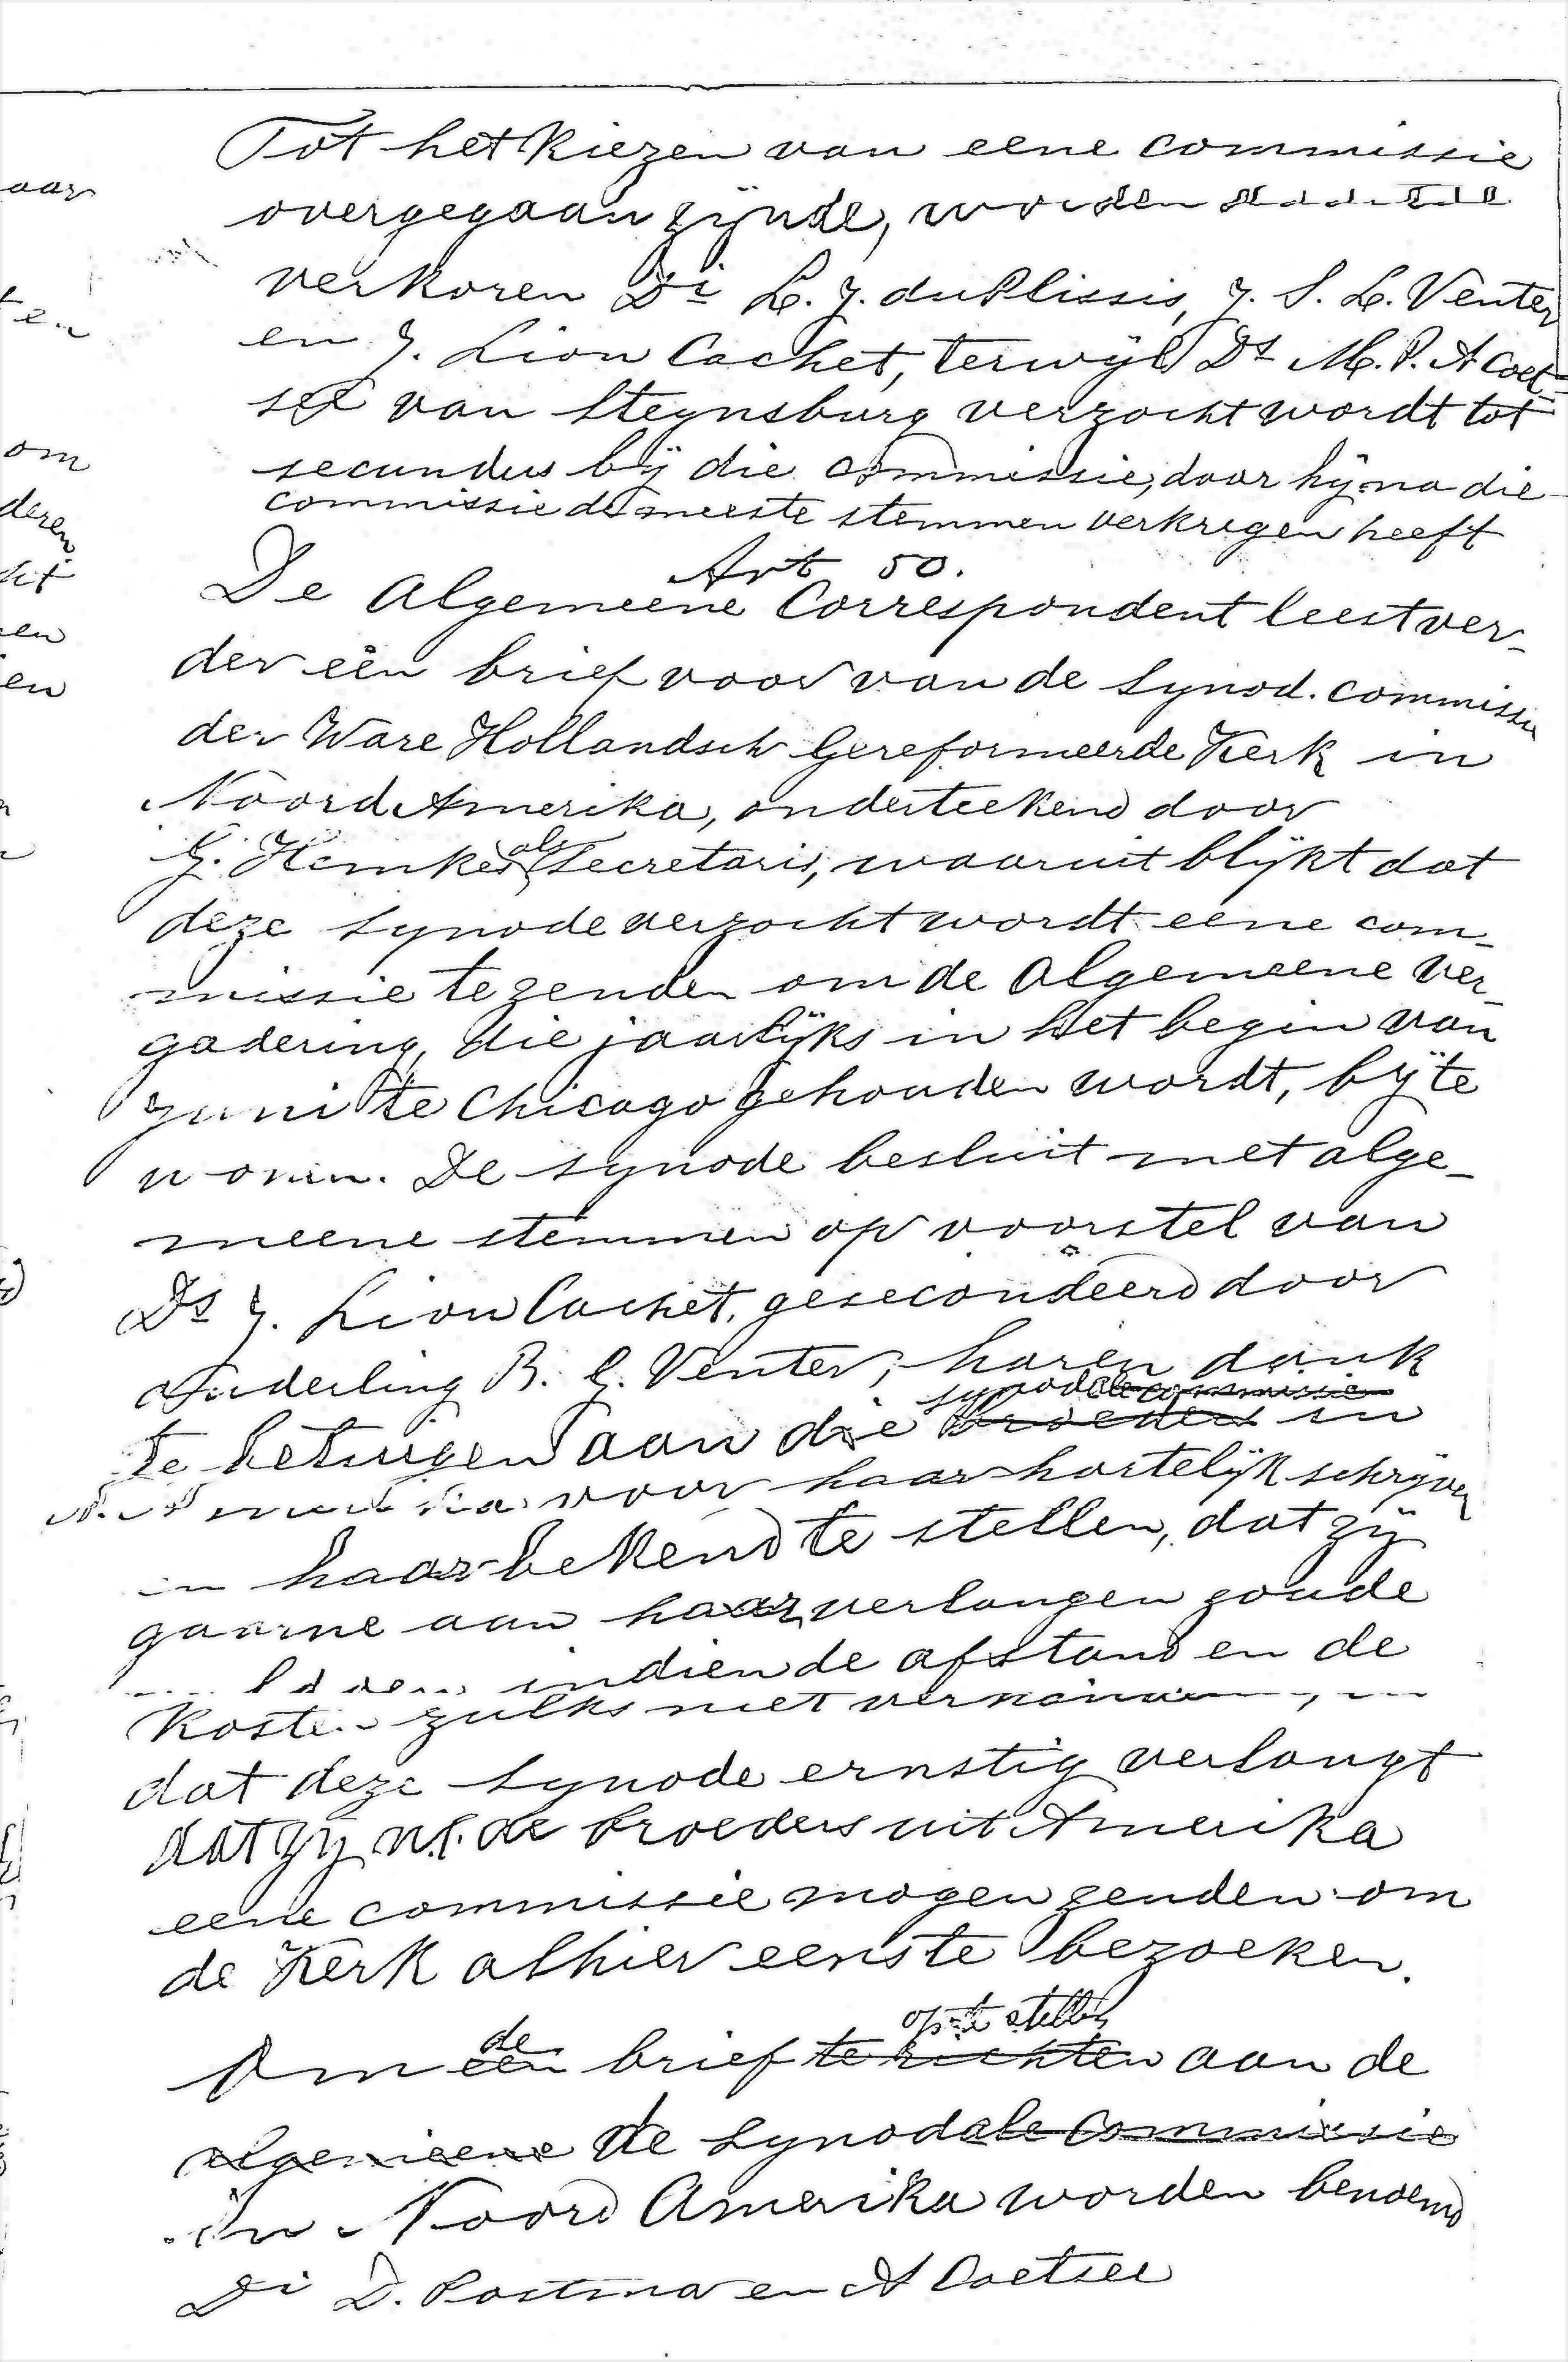 Tot het kiezen van eene commissie
overgegaan zijnde, worden daartoe
verkoren Di L. J. du Plissis, J. S. L. Venter
en J. Lion Cachet, terwijl Ds M. P. A Coet-
see van Steynsburg verzocht wordt tot
secundus bij die commissie, daar hij na die
commissie de meeste stemmen verkregen heeft
Art 50.
De Algemeene Correspondent leest ver-
der een brief voor van de Synod. commissie
der Ware Hollandsch Gereformeerde Kerk in
Noord Amerika, onderteekend door
G. Hemkes als Secretaris, waaruit blijkt dat
deze Synode verzocht wordt eene com-
missie te zenden om de Algemeene Ver-
gadering, die jaarlijks in het begin van
Juni te Chicago gehouden wordt, bij te
wonen. De Synode besluit met alge-
meene stemmen op voorstel van
Ds J. Lion Cachet, gesecondeerd door
Ouderling B. G. Venter, haren dank
synodale commissie
te betuigen aan die broeders in
N. Amerika voor haar hartelijk schrijven
en haar bekend te stellen, dat zij
gaarne aan haar verlangen zoude
indien de afstand en de
Kosten zulks niet
dat deze Synode ernstig verlangt
dat zij nl. de broeders uit Amerika
eene commissie mogen zenden om
de Kerk alhier eens te bezoeken.
de op te stellen
Om een brief te richten aan de
algemeene de Synodale Commissie
in Noord Amerika worden benoemd
Di D. Postma en A Coetsee
aar
ten
om
deren
en
en